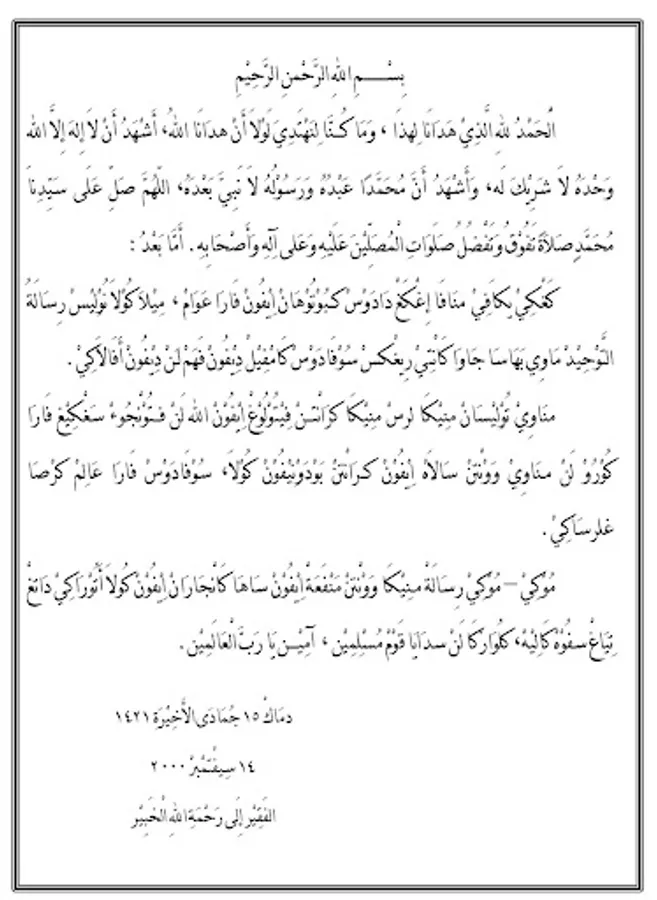 بِسْــــمِ اللهِ الرَّحْمنِ الرَّحِيْمِ
اَلْحَمْدُ للهِ الَّذِيْ هَدَانَا لِهذَا ، وَمَا كُـنَّا لِنَهْتَدِيَ لَوْلاَ أَنْ هدَانَا اللهُ، أَشْهَدُ أَنْ لاَ إِلهَ إِلاَّ الله
وَحْدَهُ لاَ شَرِيْكَ لَه، وَأَشْهَدُ أَنَّ مُحَمَّدًا عَبْدُهُ وَرَسُوْلُه لاَ نَبِيَّ بَعْدَهُ، اللَّهُمَّ صَلِّ عَلَى سَيِّدِناَ
مُحَمَّدٍ صَلاَةً تَفُوْقُ وَتَفْضُلُ صَلَوَاتِ الْمُصَلِّيْنَ عَلَيْهِ وَعَلى آلِهِ وَأَصْحَابِهِ . أَمَّا بَعْدُ :
كَڠْكِيْ بِكَافِيْ مَنَافَا إِڠْكَڠْ دَادَوْسْ كَبُوْتُوْهَانْ اِيْفُوْنْ فَارَا عَوَامْ ، مِيْلاَ كُوْلاَ نُوْلِيْسْ رِسَالَةُ
التَّوْحِيْدْ مَاوِي بَهَاسَا جَاوَا كَانْتِيْ رِيڠْكَسْ سُوْفَادَوْسْ كَامْفِيْلْ دِيْفُوْنْ فَهَمْ لَنْ دِيْفُوْنْ أَفَالاَكِيْ.
مَنَاوِيْ نُوْلِيْسَانْ مَنِيْكَا لَرَسْ مَنِيْكَا كَرَانْتَـنْ فِيْتُوْلُوْڠْ اِيْفُوْنْ الله لَنْ فـتُوْنْجُوءْ سَڠْكِيْڠْ فَارَا
ڮُوْرُوْ لَنْ مـَنَاوِيْ وَوْنْتَنْ سَالاَهْ اِيْفُوْنْ كَـرَانْتَنْ بَوْدَوْنِيْفُوْنْ كُوْلاَ، سُوْفَادَوْسْ فَارَا عَالِمْ كَرْصَا
غلرسَاكِيْ.
مُوْڮِيْ – مُوْڮِيْ رِسَالَةْ مـَنِيْكَا وَوْنْتَنْ مَنْفَعَةْ اِيْفُوْنْ سَاهَا كَانْجَارَانْ اِيْفُوْنْ كُولاَ أَتُوْرَاكِيْ دَاتَڠْ
تِيَاڠْ سفُوْهْ كَالِيْهْ، كَلُوَارْڮَا لَنْ سدَايَا قَوْمْ مُسْلِمِيْن ، آمِيْـن يَا رَبَّ الْعَالَمِيْن.
دمَاكْ ١٥ جُمَادَى الأَخِيْرَة ١٤٢١
١٤ سيفْتَمْبرْ ٢٠٠٠
الفَقِيْر إِلَى رَحْمَةِ اللهِ الْخَبِيْر